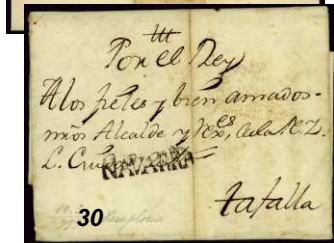 Por el Rey
A los fieles y bien amados
mios Alcalde y Rex.es de la N. L.
L. Ciu
NAVARRA
Tafalla
30
Pamplona